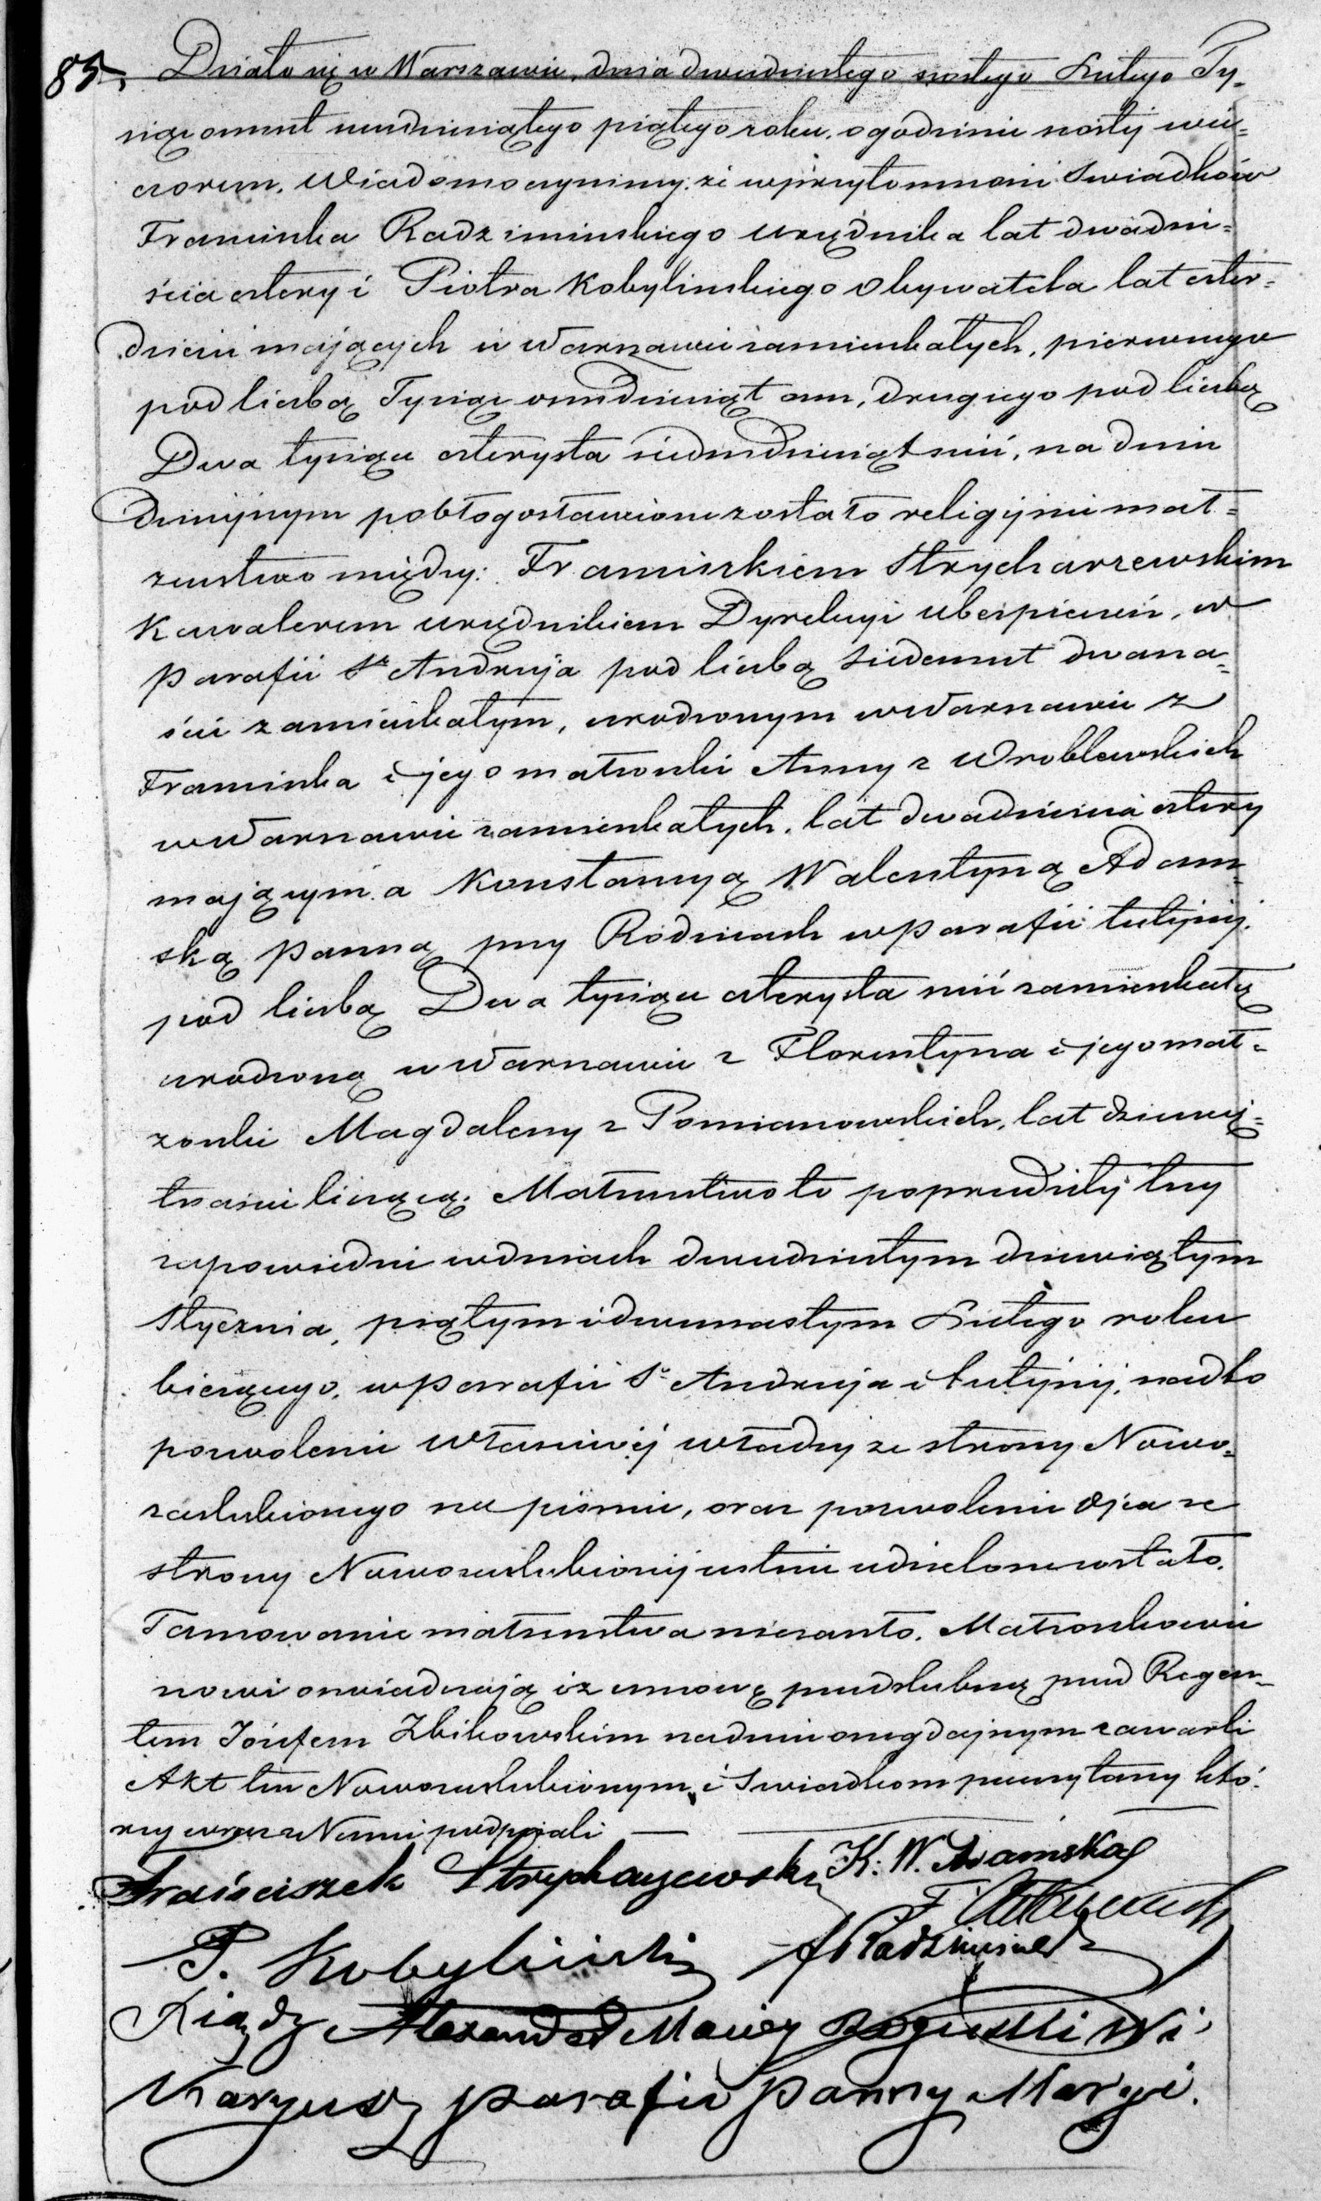 85. Działo się w Warszawie, dnia dwudziestego szóstego Lutego Ty-
siąc osmset ośmdziesiątego piątego roku, o godzinie szóstej wie-
czorem. Wiadomo czynimy, że w przytomności Swiadków
Franciszka Radzimińskiego urzędnika lat dwadzie-
ścia cztery i Piotra Kobylinskiego Obywatela lat czter-
dzieści mających w Warszawie zamieszkałych, pierwszego
pod liczbą Tysiąc osmdziesiąt osm, drugiego pod liczbą
Dwa tysiące czterysta siedmdziesiąt sześć, na dniu
dzisiejszym pobłogosławione zostało religijnie mał-
żeństwo między: Franciszkiem Strycharzewskim
Kawalerem urzędnikiem Dyrekcyi Ubezpieczeń, w
Parafii Sgo Andrzeja pod liczbą Siedemset dwana-
ście zamieszkałym, urodzonym w Warszawie z
Franciszka i jego małżonki Anny z Wroblewskich
w Warszawie zamieszkałych, lat dwadzieścia cztery
mającym a Konstancyą Walentyną Adam-
ską Panną przy Rodzicach w Parafii tutejszej
pod liczbą Dwa tysiące czterysta sześć zamieszkałą
urodzoną w Warszawie z Florentyna i jego mał-
żonki Magdaleny z Pomianowskich, lat dziewię-
tnaście liczącą. Małżeństwo to poprzedziły trzy
zapowiedzi w dniach dwudziestym dziewiątym
Stycznia, piątym i dwunastym Lutego roku
bieżącego, w Parafii Sgo Andrzeja i tutejszej, nadto
pozwolenie właściwej władzy ze strony Nowo-
zaślubionego na piśmie, oraz pozwolenie Ojca ze
strony Nowozaślubionej ustnie udzielone zostało.
Tamowanie małżeństwa nie zaszło. Małżonkowie
nowi oświadczają iż umowę przedślubną przed Regen-
tem Józefem Zbikowskim na dniu onegdajszym zawarli
Akt ten Nowozaślubionym i Swiadkom przeczytany któ-
rzy wraz z Nami podpisali
Franciszek Strycharzewski K. W. Adamska
F.
P. Kobyliński Radzimiński
Xiądz Alexander Maciey
Wikaryusz parafii Panny Maryi.